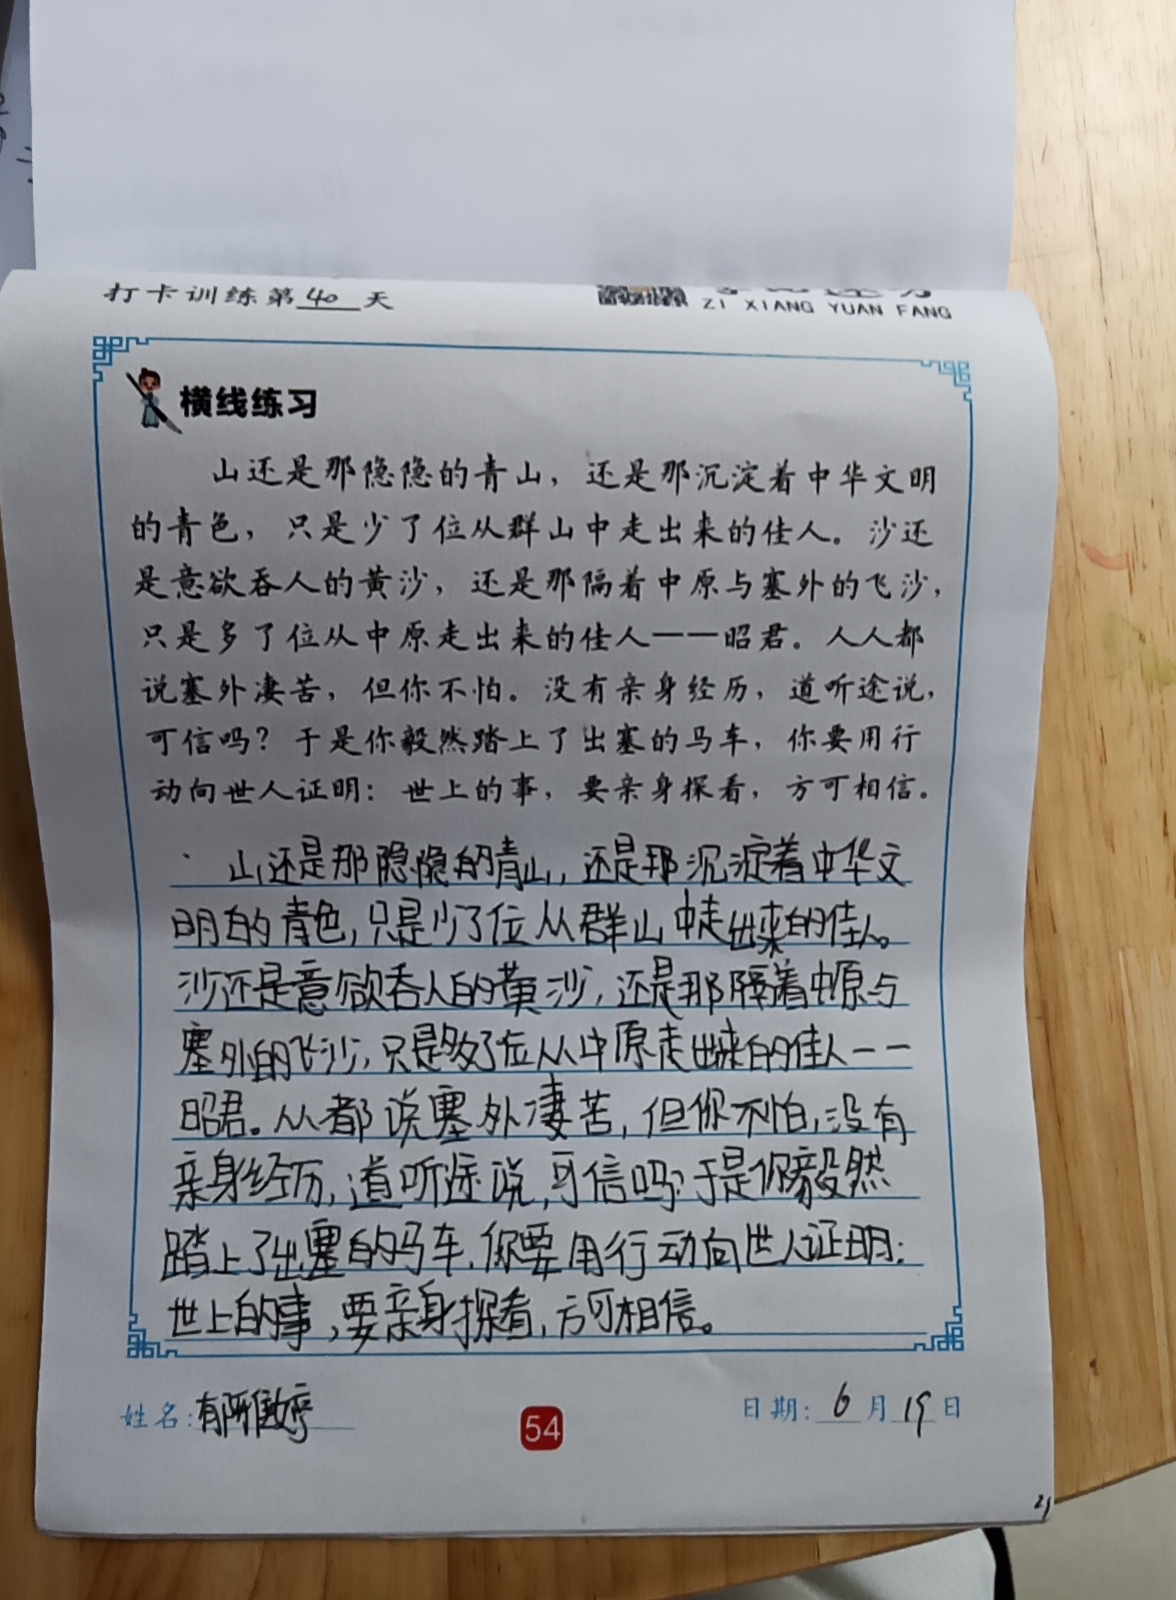 打卡训练第40天
ZI XIANG YUAN FANG
横线练习
山还是那隐隐的青山，还是那沉淀着中华文明
的青色，只是少了位从群山中走出来的佳人。沙还
是意欲吞人的黄沙，还是那隔着中原与塞外的飞沙，
只是多了位从中原走出来的佳人——昭君。人人都
说塞外凄苦，但你不怕。没有亲身经历，道听途说，
可信吗？于是你毅然踏上了出塞的马车，你要用行
动向世人证明：世上的事，要亲身探看，方可相信。
山还是那隐隐的青山，还是那沉淀着中华文
明的青色，只是少了位从群山中走出来的佳人。
沙还是意欲吞人的黄沙，还是那隔着中原与
塞外的飞沙，只是多了位从中原走出来的佳人——
昭君。人人都说塞外凄苦，但你不怕，没有
亲身经历，道听途说，可信吗？于是你毅然
踏上了出塞的马车，你要用行动向世人证明：
世上的事，要亲身探看，方可相信。
姓名：
54
日期：6月19日